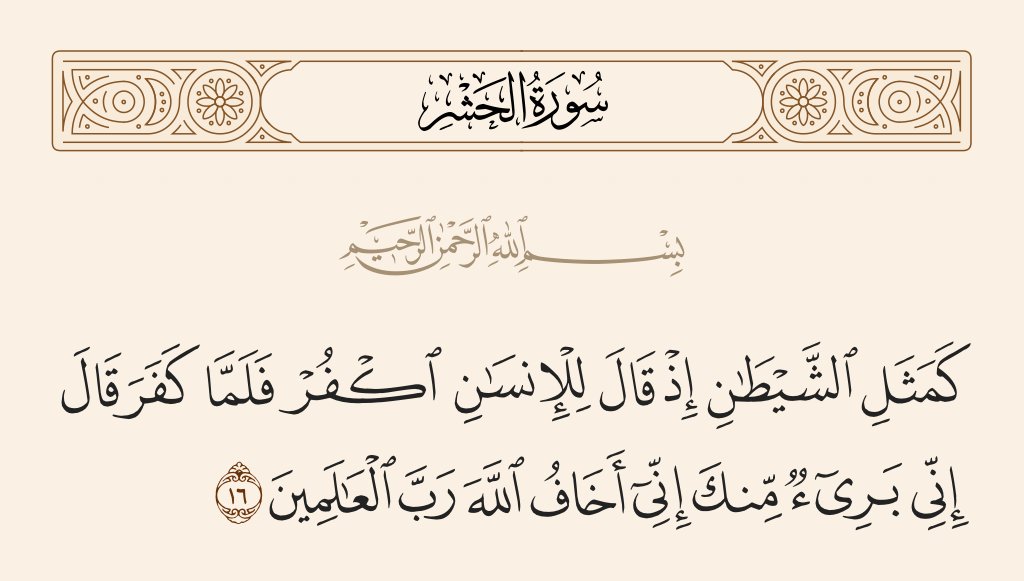 سُورَةُ الحَشْرِ
بِسْمِ ٱللَّهِ ٱلرَّحْمَٰنِ ٱلرَّحِيمِ
كَمَثَلِ ٱلشَّيْطَٰنِ إِذْ قَالَ لِلْإِنسَٰنِ ٱكْفُرْ فَلَمَّا كَفَرَ قَالَ
إِنِّى بَرِىٓءٌ مِّنكَ إِنِّىٓ أَخَافُ ٱللَّهَ رَبَّ ٱلْعَٰلَمِينَ ١٦